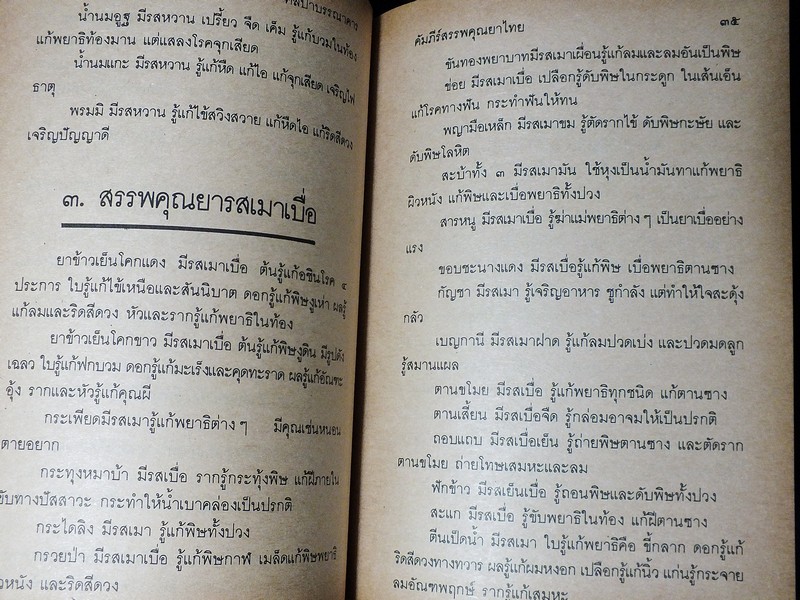 กลปาบรรณาคาร
น้ำนมอูฐ มีรสหวาน เปรี้ยว จืด เค็ม รู้แก้บวมในท้อง
แก้พยาธิท้องมาน แต่แสลงโรคจุกเสียด
น้ำนมแกะ มีรสหวาน รู้แก้หืด แก้ไอ แก้จุกเสียด เจริญไฟ
ธาตุ
พรมมิ มีรสหวาน รู้แก้ไข้สวิงสวาย แก้หืดไอ แก้ริดสีดวง
เจริญปัญญาดี
๓. สรรพคุณยารสเมาเบื่อ
ยาข้าวเย็นโคกแดง มีรสเมาเบื่อ ต้นรู้แก้อชินโรค ๔
ประการ ใบรู้แก้ไข้เหนือและสันนิบาต ดอกรู้แก้พิษงูเห่า ผลรู้
แก้ลมและริดสีดวง หัวและรากรู้แก้พยาธิในท้อง
ยาข้าวเย็นโคกขาว มีรสเมาเบื่อ ต้นรู้แก้พิษงูดิน มีรูปดัง
เฉลว ใบรู้แก้ฟกบวม ดอกรู้แก้มะเร็งและคุดทะราด ผลรู้แก้อัณฑะ
อุ้ง รากและหัวรู้แก้คุณผี
กระเพียดมีรสเมารู้แก้พยาธิต่างๆ มีคุณเช่นหนอน
ตายอยาก
กระทุงหมาบ้า มีรสเบื่อ รากรู้กระทุ้งพิษ แก้ฝีภายใน
ขับทางปัสสาวะ กระทำให้น้ำเบาคล่องเป็นปรกติ
กระไดลิง มีรสเมา รู้แก้พิษทั้งปวง
กรวยป่า มีรสเมาเบื่อ รู้แก้พิษกาฬ เมล็ดแก้พิษพยาธิ
ผิวหนัง และริดสีดวง
คัมภีร์สรรพคุณยาไทย
๓๕
ขันทองพยาบาทมีรสเมาเผื่อนรู้แก้ลมและลมอันเป็นพิษ
ข่อย มีรสเมาเบื่อ เปลือกรู้ดับพิษในกระดูก ในเส้นเอ็น
แก้โรคทางฟัน กระทำฟันให้ทน
พญามือเหล็ก มีรสเมาขม รู้ตัดรากไข้ ดับพิษกะษัย และ
ดับพิษโลหิต
สะบ้าทั้ง ๓ มีรสเมามัน ใช้หุงเป็นน้ำมันทาแก้พยาธิ
ผิวหนัง แก้พิษและเบื่อพยาธิทั้งปวง
สารหนู มีรสเมาเบื่อ รู้ฆ่าแม่พยาธิต่างๆ เป็นยาเบื่ออย่าง
แรง
ขอบชะนางแดง มีรสเบื่อรู้แก้พิษ เบื่อพยาธิตานซาง
กัญชา มีรสเมา รู้เจริญอาหาร ชูกำลัง แต่ทำให้ใจสะดุ้ง
กลัว
เบญกานี มีรสเมาฝาด รู้แก้ลมปวดเบ่ง และปวดมดลูก
รู้สมานแผล
ตานขโมย มีรสเบื่อ รู้แก้พยาธิทุกชนิด แก้ตานซาง
ตานเสี้ยน มีรสเบื่อจืด รู้กล่อมอาจมให้เป็นปรกติ
ถอบแถบ มีรสเบื่อเย็น รู้ถ่ายพิษตานซาง และตัดราก
ตานขโมย ถ่ายโทษเสมหะและลม
ฟักข้าว มีรสเย็นเบื่อ รู้ถอนพิษและดับพิษทั้งปวง
สะแก มีรสเบื่อ รู้ขับพยาธิในท้อง แก้ฝีตานซาง
ตีนเป็ดน้ำ มีรสเมา ใบรู้แก้พยาธิคือ ขี้กลาก ดอกรู้แก้
ริดสีดวงทางทวาร ผลรู้แก้ผมหงอก เปลือกรู้แก้นิ่ว แก่นรู้กระจาย
ลมอัณฑพฤกษ์ รากรู้แก้เสมหะ